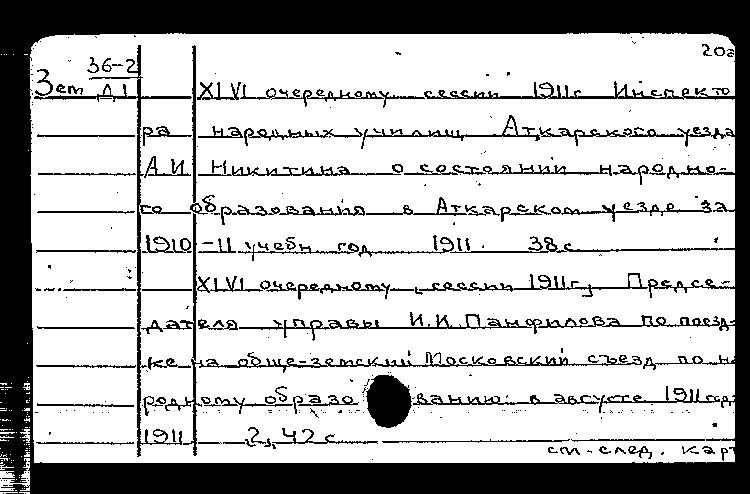 20а
36-2
Зет Д1 XLVI очередному сессии 1911г Инспекто
ра народных училищ Аткарского уезда
А.И Никитина о состоянии народно-
го образования в Аткарском уезде за
1910-11 учебн год 1911. 38 с
XLVI очередному сессии 1911г, Предсе-
дателя управы И.И.Панфилова по поезд-
ке на обще-земский Московский съезд по на
родному образованию в августе 1911 года
1911 2, 42 с
см. след. карт